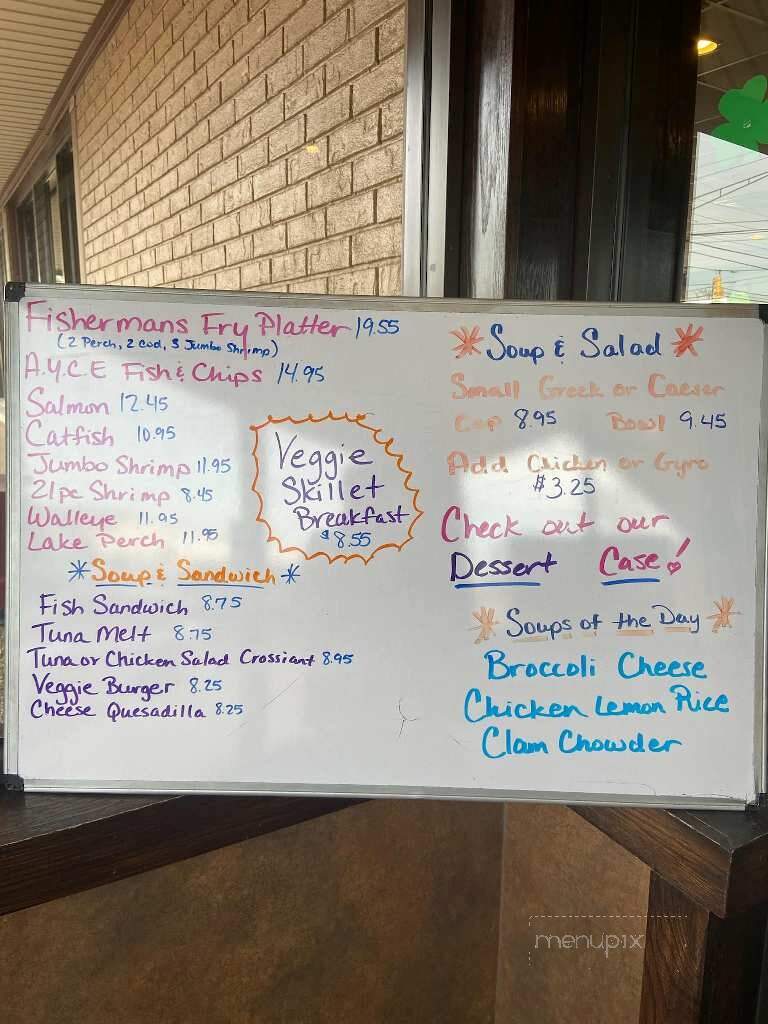 Fishermans Fry Platter 19.55
(2 Perch, 2 Cod, 3 Jumbo Shrimp)
A.Y.C.E Fish & Chips 14.95
Salmon 12.45
Catfish 10.95
Jumbo Shrimp 11.95
21pc Shrimp 8.45
Walleye 11.95
Lake Perch 11.95
Veggie
Skillet
Breakfast
$8.55
*Soup & Sandwich*
Fish Sandwich 8.75
Tuna Melt 8.75
Tuna or Chicken Salad Crossiant 8.95
Veggie Burger 8.25
Cheese Quesadilla 8.25
*Soup & Salad*
Small Greek or Caeser
Cup 8.95 Bowl 9.45
Add Chicken or Gyro
$3.25
Check out our
Dessert Case!
*Soups of the Day*
Broccoli Cheese
Chicken Lemon Rice
Clam Chowder
menupix